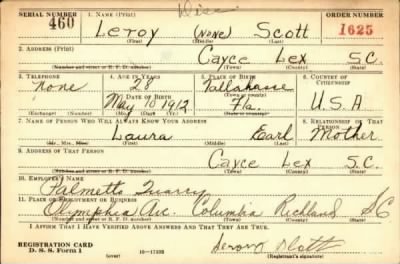 Dise
SERIAL NUMBER 1. NAME (Print) ORDER NUMBER
460 Leroy (none) Scott 1625
(First) (Middle) (Last)
2. ADDRESS (Print)
Cayce Lex S.C.
(Number and street or R. F. D. number) (Town) (County) (State)
3. TELEPHONE 4. AGE IN YEARS 5. PLACE OF BIRTH 6. COUNTRY OF CITIZENSHIP
None 28 Tallahasse
DATE OF BIRTH (Town or county)
May 10 1912 Fla. U.S.A
(Exchange) (Number) (Mo.) (Day) (Yr.) (State or country)
7. NAME OF PERSON WHO WILL ALWAYS KNOW YOUR ADDRESS 8. RELATIONSHIP OF THAT PERSON
Laura Earl Mother
(Mr., Mrs., Miss) (First) (Middle) (Last)
9. ADDRESS OF THAT PERSON
Cayce Lex S.C.
(Number and street or R. F. D. number) (Town) (County) (State)
10. EMPLOYER'S NAME
Palmetto Quarry
11. PLACE OF EMPLOYMENT OR BUSINESS
Olymphia Ave. Columbia Richland S.C
(Number and street or R. F. D. number) (Town) (County) (State)
I AFFIRM THAT I HAVE VERIFIED ABOVE ANSWERS AND THAT THEY ARE TRUE.
REGISTRATION CARD
D. S. S. Form 1 (over) 16—17105
(Registrant's signature)